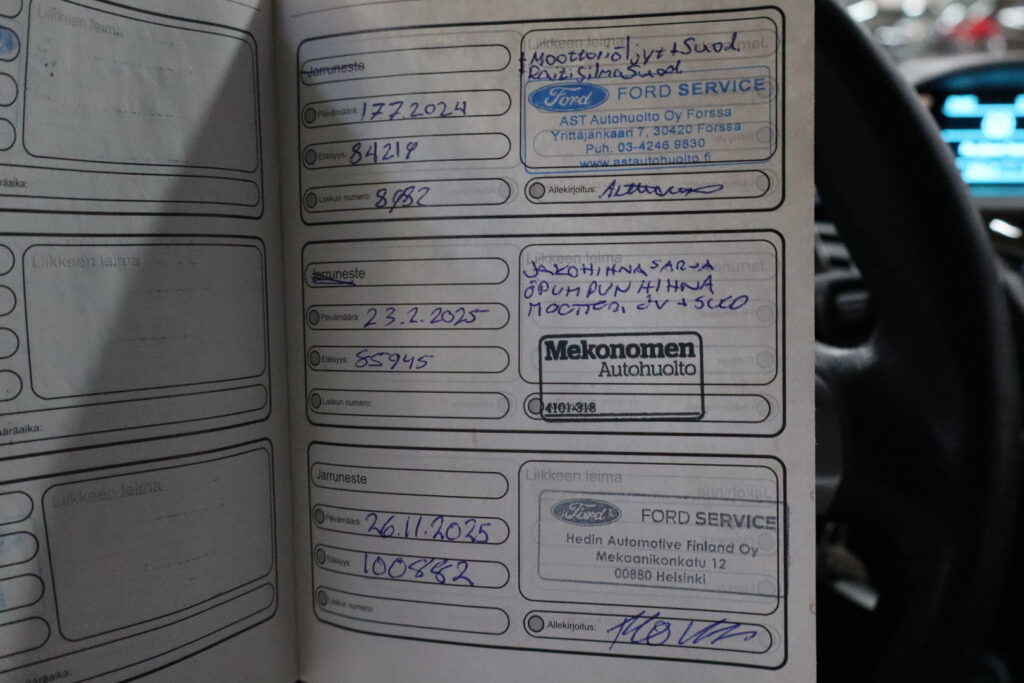 Liikkeen leima
äräaika:
Liikkeen leima
äräaika:
Liikkeen leima
Jarruneste
Päivämäärä: 17.7.2024
Etäisyys: 84219
Laskun numero: 8982
Liikkeen leima
Moottoriöljyt + Suod.
Raitisilmasuod
Ford FORD SERVICE
AST Autohuolto Oy Forssa
Yrittäjänkaari 7, 30420 Forssa
Puh. 03-4246 9830
www.astautohuolto.fi
Allekirjoitus:
Jarruneste
Päivämäärä: 23.2.2025
Etäisyys: 85945
Laskun numero:
JAKOHIHNASARJA
ÖPUMPUN HIHNA
MOOTTORI. ÖV + SUOD
Mekonomen
Autohuolto
4101-318
Jarruneste
Päivämäärä: 26.11.2025
Etäisyys: 100882
Laskun numero:
Liikkeen leima
Ford FORD SERVICE
Hedin Automotive Finland Oy
Mekaanikonkatu 12
00880 Helsinki
Allekirjoitus: